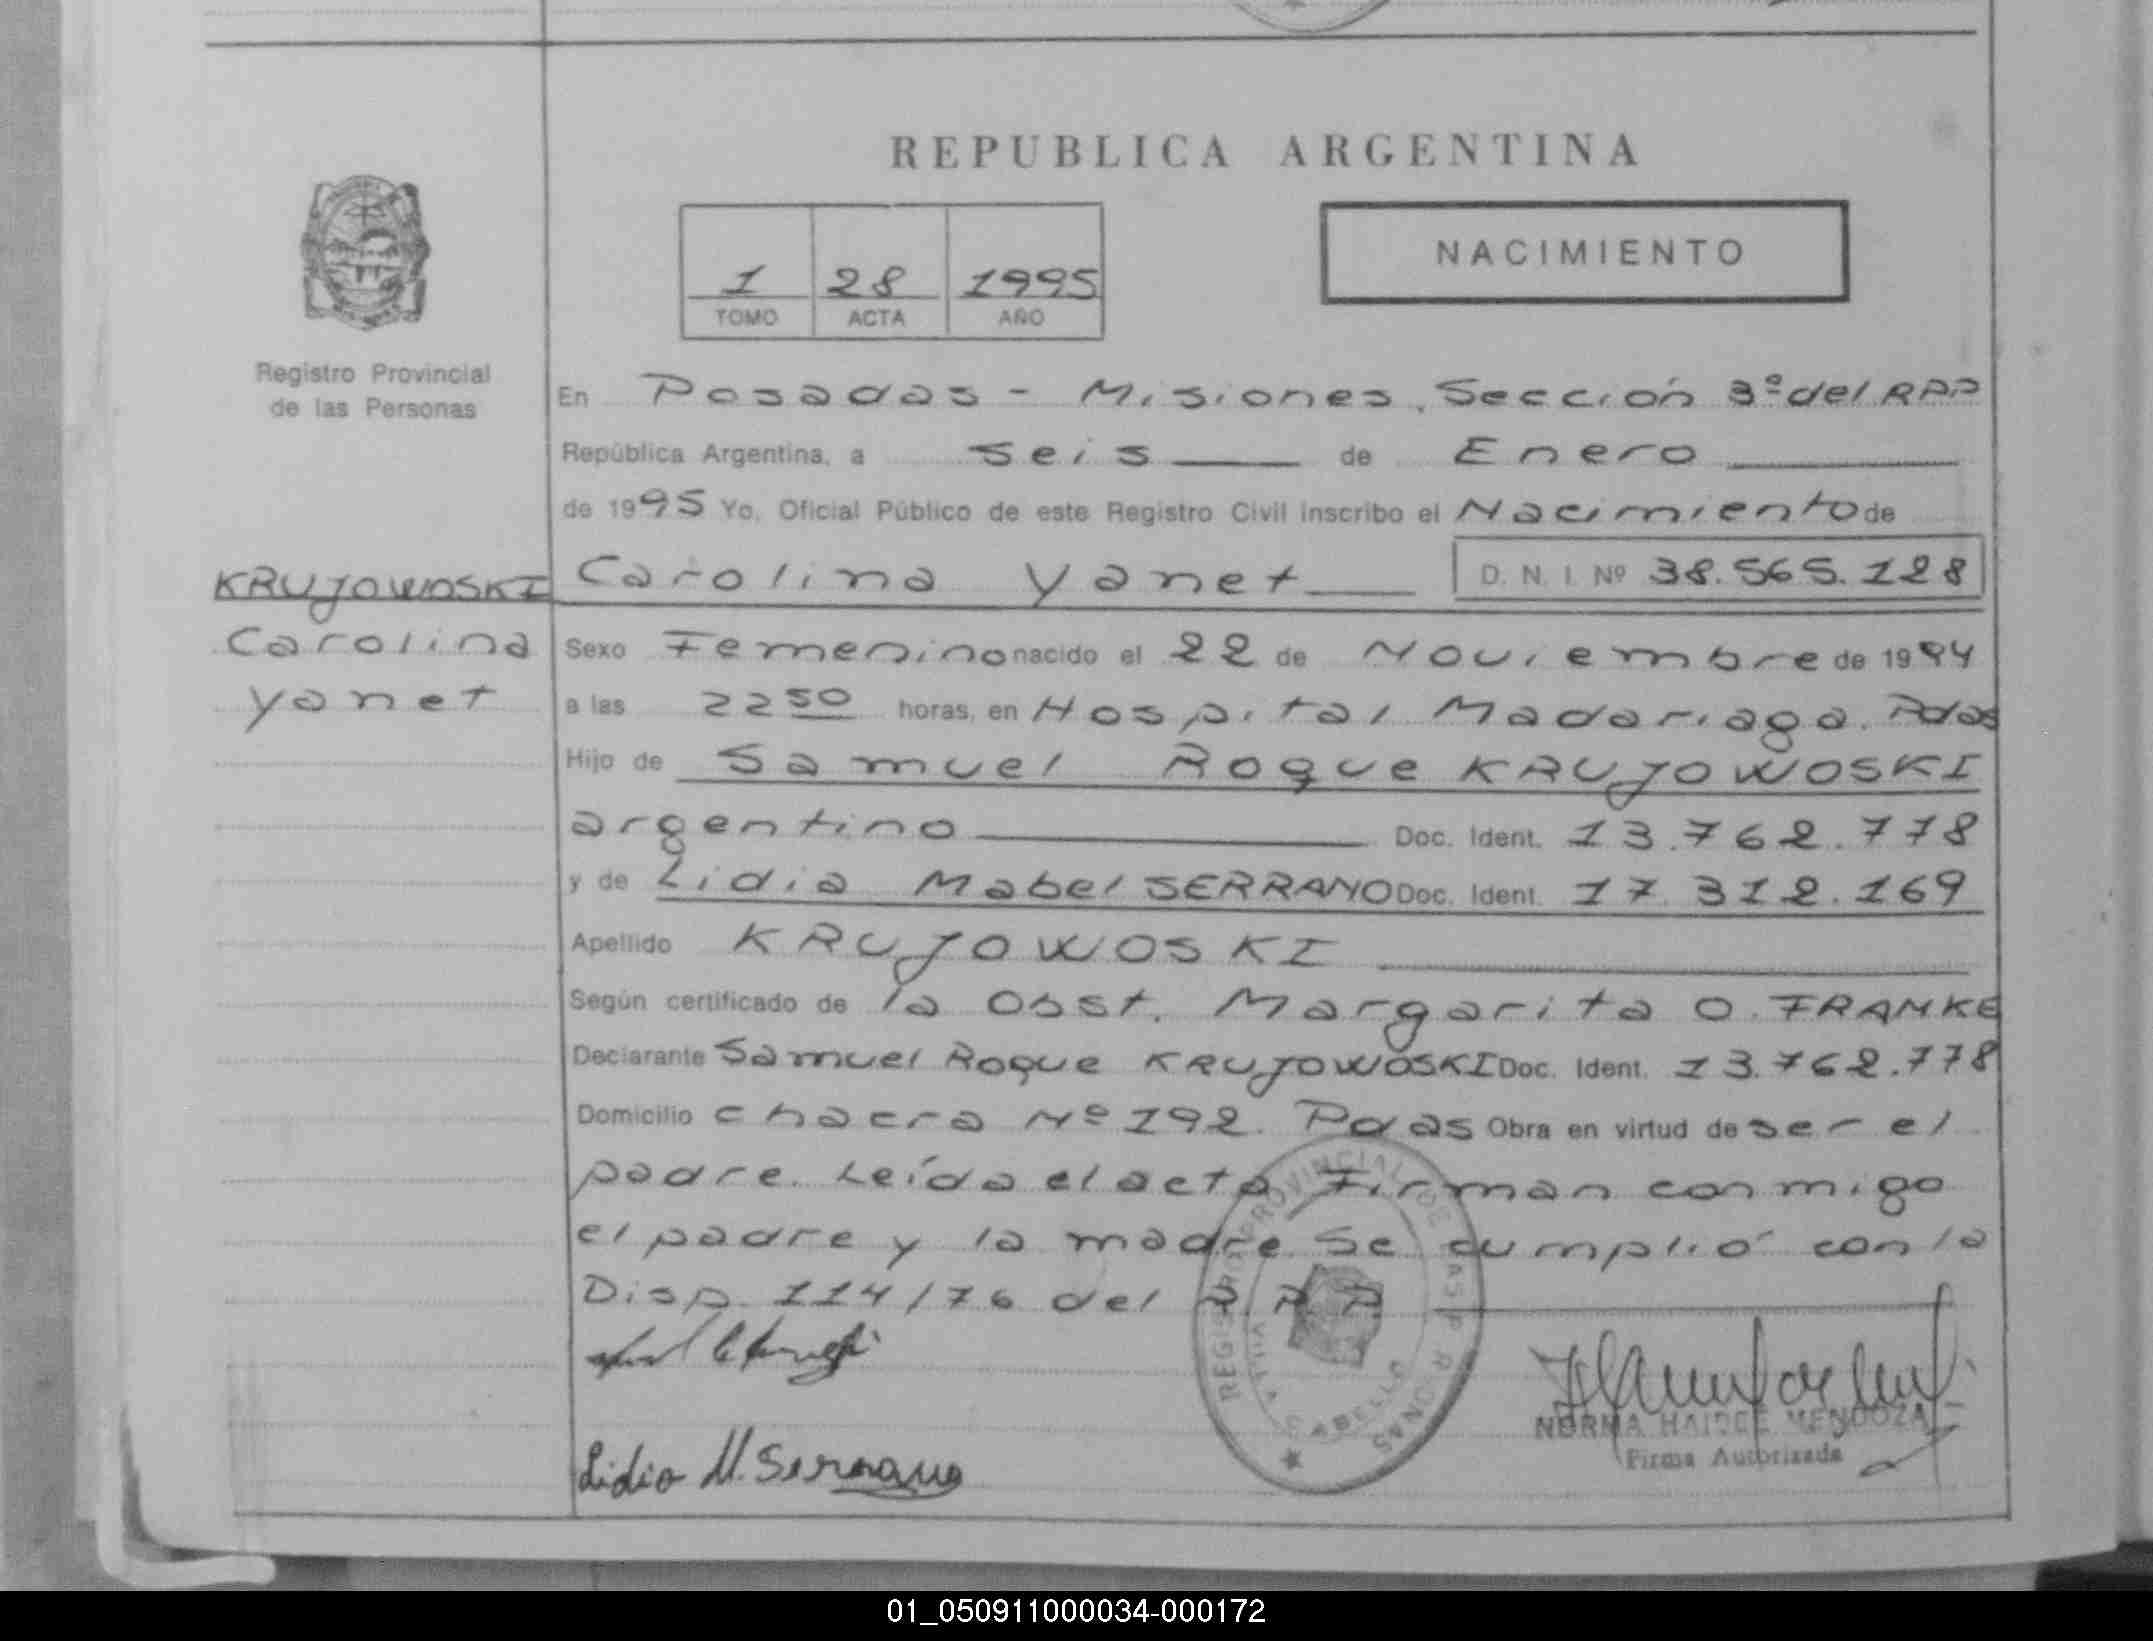 REPUBLICA ARGENTINA
NACIMIENTO
1 28 1995
TOMO ACTA AÑO
Registro Provincial
de las Personas
En Posadas - Misiones. Sección 3º del RPP
República Argentina, a seis de Enero
de 1995 Yo, Oficial Público de este Registro Civil inscribo el Nacimiento de
Carolina Yanet D. N. I. Nº 38.565.128
KRUJOWOSKI
Carolina
Yanet
Sexo Femenino nacido el 22 de Noviembre de 1994
a las 22 50 horas, en Hospital Madariaga. Pdas
Hijo de Samuel Roque KRUJOWOSKI
argentino Doc. Ident. 13.762.778
y de Lidia Mabel SERRANO Doc. Ident. 17.312.169
Apellido KRUJOWOSKI
Según certificado de la Obst. Margarita O. FRANKE
Declarante Samuel Roque KRUJOWOSKI Doc. Ident. 13.762.778
Domicilio chacra Nº 192. Pdas Obra en virtud de ser el
padre. Leída el acta Firman conmigo
el padre y la madre. Se cumplió con la
Disp. 114/76 del R.P.P
REGISTRO PROVINCIAL DE LAS PERSONAS
VILLA CABELLO
Lidia M. Serrano
NORMA HAIDEE MENDOZA
Firma Autorizada
01_050911000034-000172